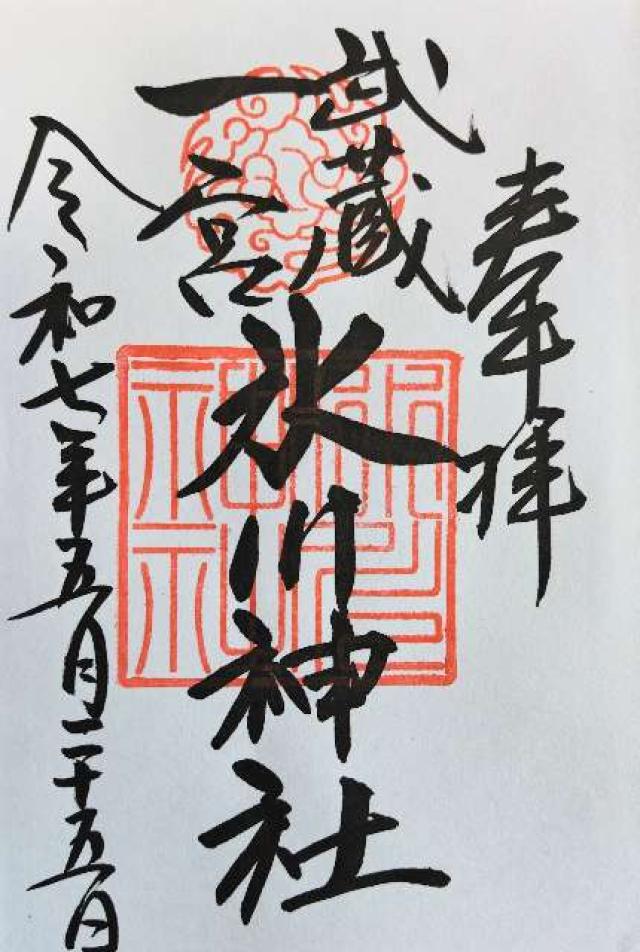 奉拝
武蔵
一宮
氷川神社
令和七年五月二十五日